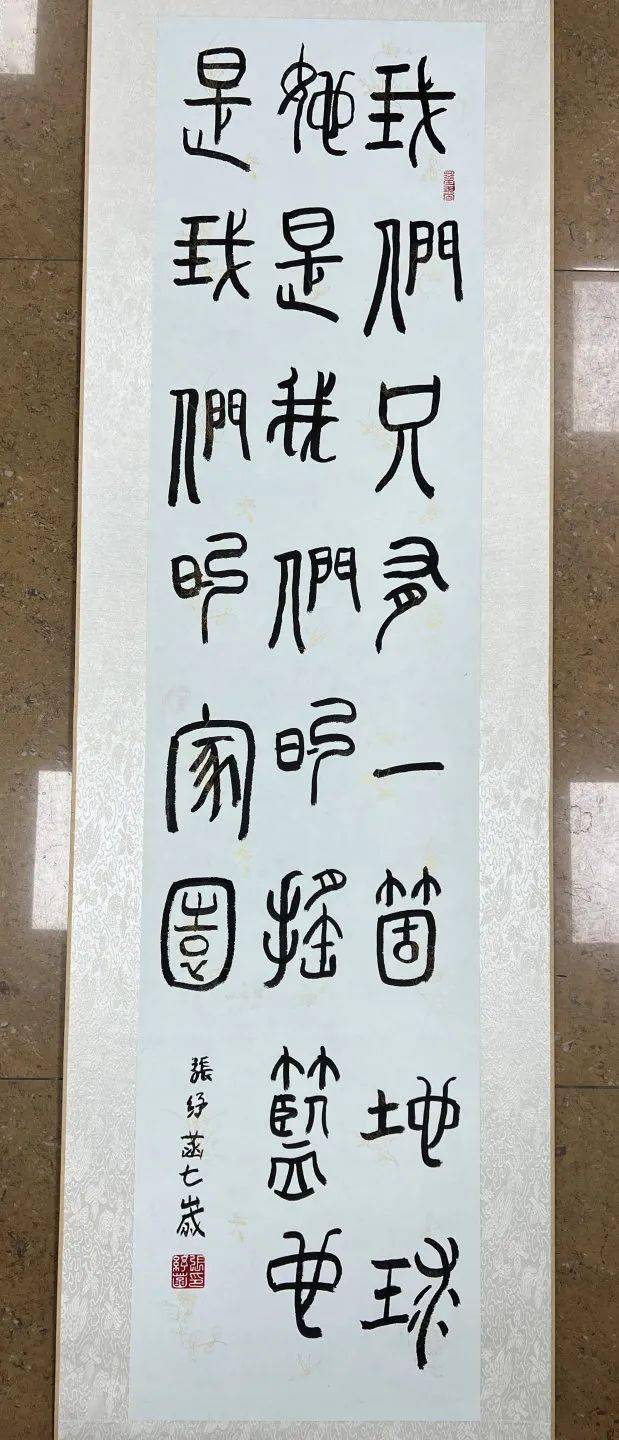 我們只有一箇地球
她是我們的搖籃也
是我們的家園
張紓菡七歲